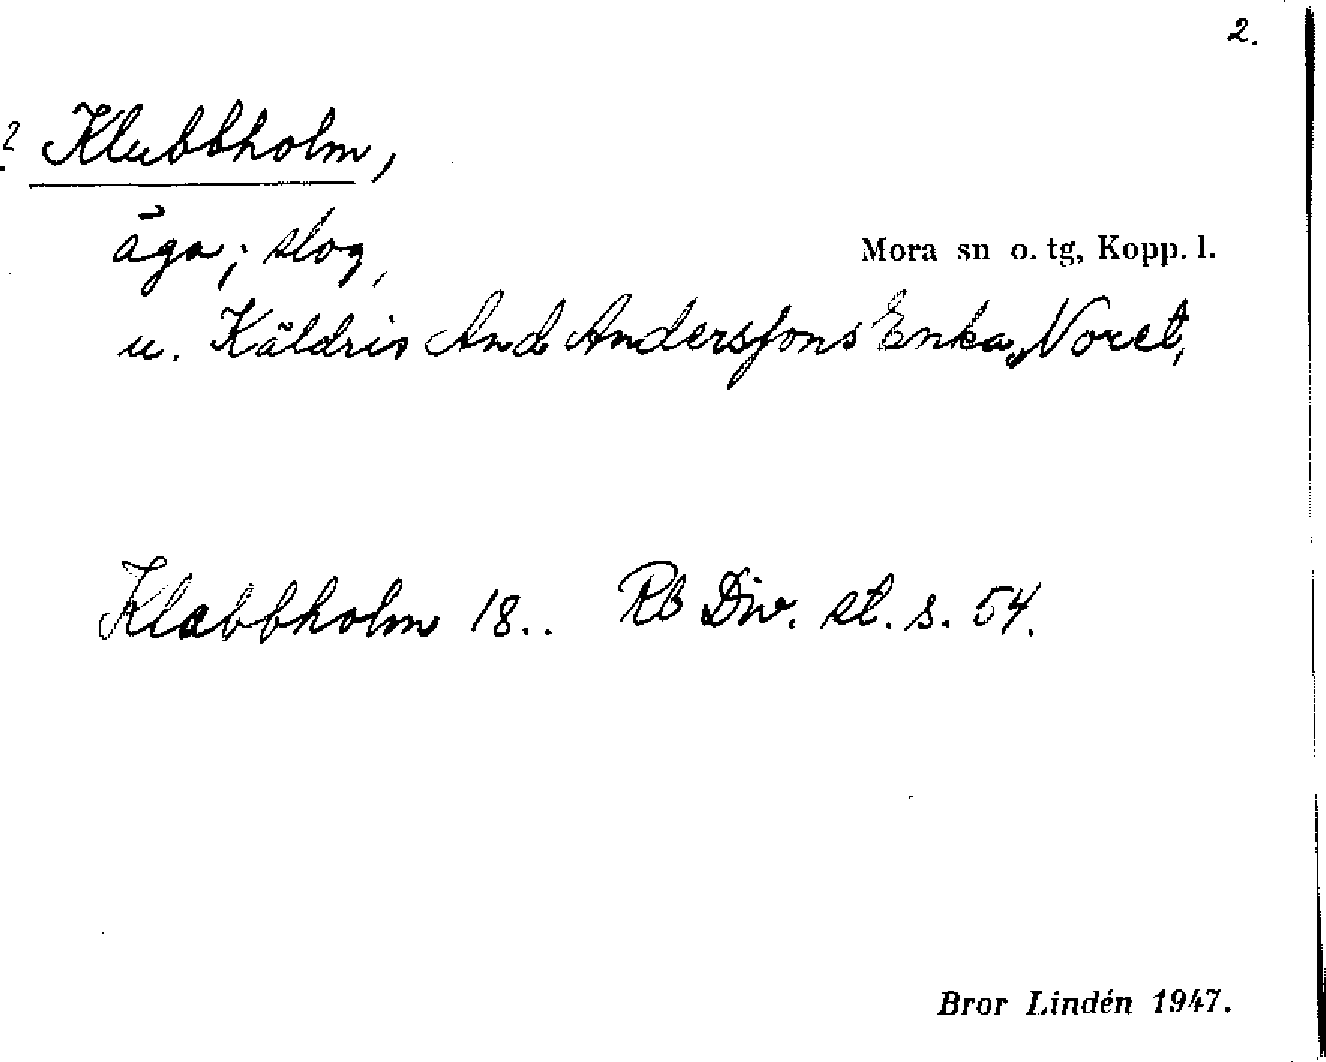 2.
? Klubbholm,
äga; slog,
Mora sn o. tg, Kopp. l.
u. Käldris And Andersfons Enka, Noret,
Klabbholm 18.. Rb Div. st. s. 54.
Bror Lindén 1947.